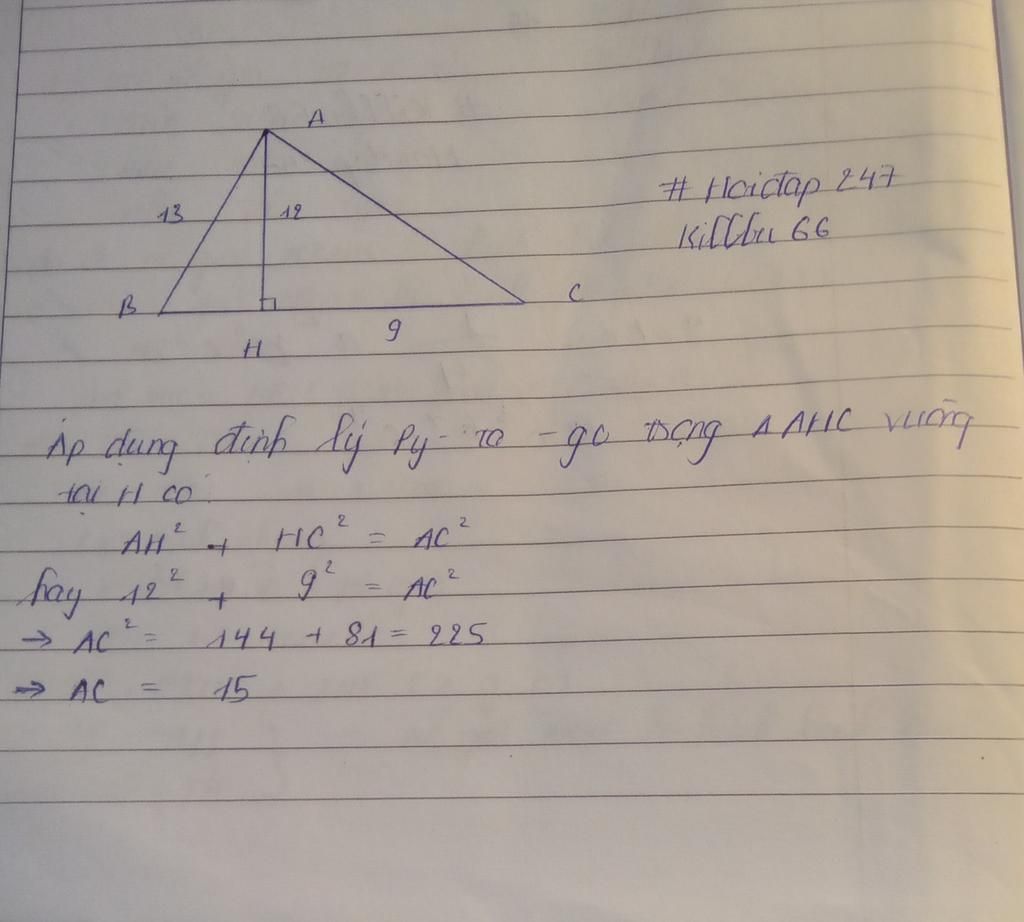 A
13
12
# Hoidap 247
Killbu 66
B
C
H
9
Áp dụng định lý Py-ta-go trong ΔAHC vuông
tại H có:
AH² + HC² = AC²
hay 12² + 9² = AC²
→ AC² = 144 + 81 = 225
→ AC = 15